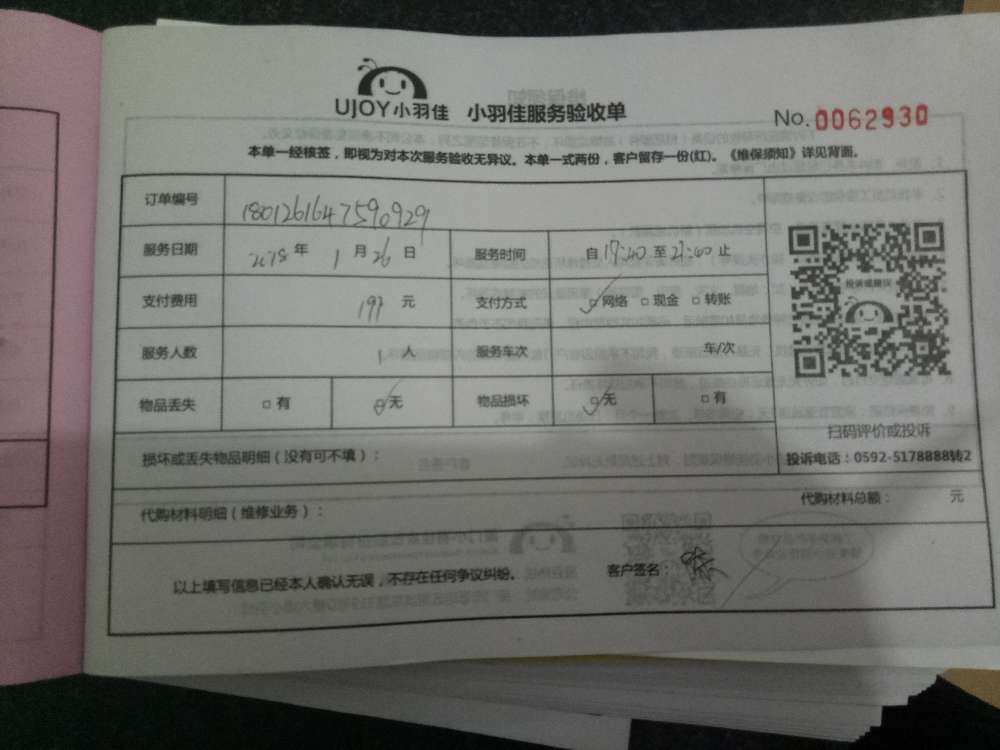 UJOY小羽佳 小羽佳服务验收单
No.0062930
本单一经核签，即视为对本次服务验收无异议。本单一式两份，客户留存一份(红)。《维保须知》详见背面。
订单编号 1801261647590929
服务日期 2018 年 1 月 26 日 服务时间 自 17:40 至 21:40 止
支付费用 197 元 支付方式 网络 现金 转账
服务人数 1 人 服务车次 车/次
物品丢失 有 无 物品损坏 无 有
投诉或建议
扫码评价或投诉
投诉电话：0592-5178888转2
损坏或丢失物品明细（没有可不填）：
代购材料明细（维修业务）： 代购材料总额： 元
以上填写信息已经本人确认无误，不存在任何争议纠纷。 客户签名：